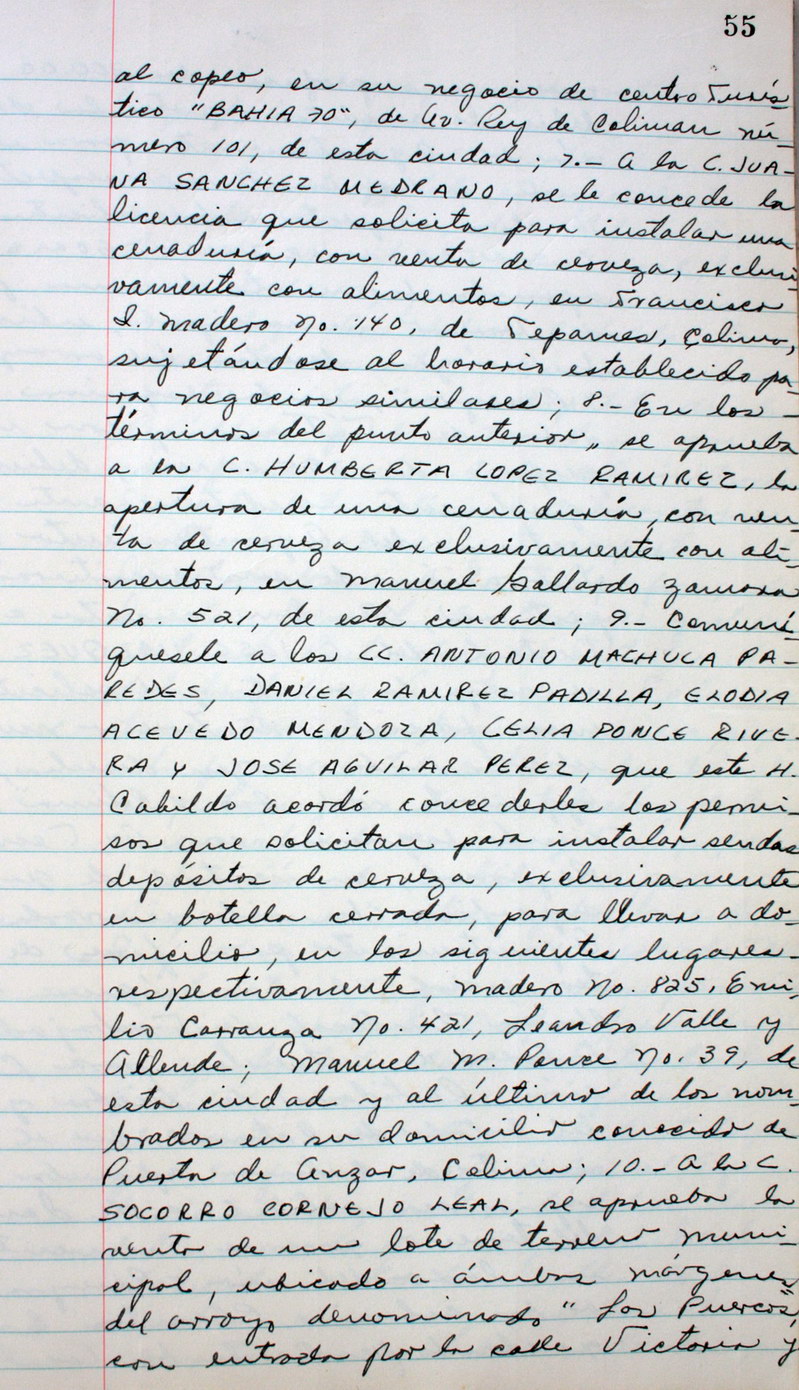 55
al copeo, en su negocio de centro Turís-
tico "BAHIA 70", de Av. Rey de Coliman nú-
mero 101, de esta ciudad; 7.- A la C. JUA-
NA SANCHEZ MEDRANO, se le concede la
licencia que solicita para instalar una
cenaduría, con venta de cerveza, exclusi-
vamente con alimentos, en Francisco
I. Madero No. 140, de Tepames, Colima,
sujetándose al horario establecido pa-
ra negocios similares; 8.- En los -
términos del punto anterior, se aprueba
a la C. HUMBERTA LOPEZ RAMIREZ, la
apertura de una cenaduría, con ven-
ta de cerveza exclusivamente con ali-
mentos, en Manuel Gallardo Zamora
No. 521, de esta ciudad; 9.- Comuní-
quesele a los CC. ANTONIO MACHUCA PA-
REDES, DANIEL RAMIREZ PADILLA, ELODIA
ACEVEDO MENDOZA, CELIA PONCE RIVE-
RA Y JOSE AGUILAR PEREZ, que este H.
Cabildo acordó concederles los permi-
sos que solicitan para instalar sendos
depósitos de cerveza, exclusivamente
en botella cerrada, para llevar a do-
micilio, en los siguientes lugares -
respectivamente, Madero No. 825, Emi-
lio Carranza No. 421, Leandro Valle y
Allende; Manuel M. Ponce No. 39, de
esta ciudad y al último de los nom-
brados en su domicilio conocido de
Puerta de Anzar, Colima; 10.- A la C.
SOCORRO CORNEJO LEAL, se aprueba la
venta de un lote de terreno muni-
cipal, ubicado a ámbas márgenes
del arroyo denominado "Los Puercos",
con entrada por la calle Victoria y